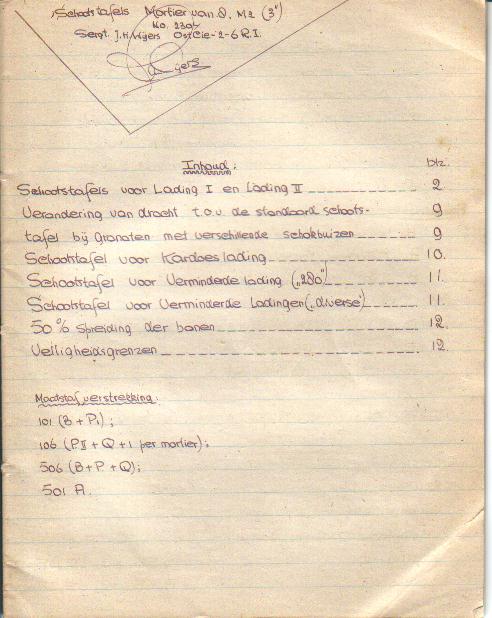 Schootstafels Mortier van 8. M2 (3")
No. 2305
Sergt. J.H. Wijers Ost Cie-2-6 R.I.
Wijers
Inhoud:
blz.
Schootstafels voor Lading I en Lading II 2
Verandering van dracht t.o.v. de standaard schoots- 9
tafel bij granaten met verschillende schokbuizen 9
Schootstafel voor Kardoeslading 10.
Schootstafel voor Verminderde lading („280") 11.
Schootstafel voor Verminderde Ladingen („diverse") 11.
50% Spreiding der banen 12.
Veiligheidsgrenzen 12
Maatstaf verstrekking:
101 (B + P1);
106 (P.II + Q + 1 per mortier);
506 (B+P+Q);
501 A.